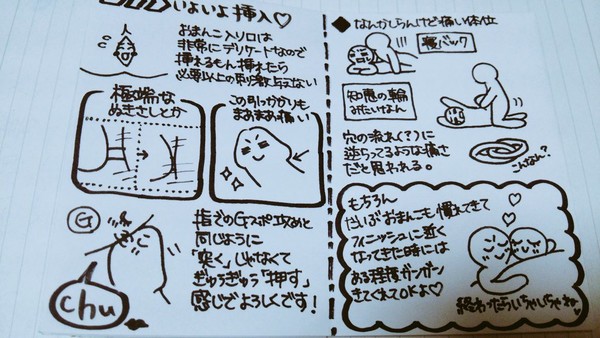 いよいよ挿入♡
おまんこ入り口は
非常にデリケートなので
挿れるもん挿れたら
必要以上の刺激は与えない
極端な
ぬきさしとか
この引っかかりも
まあまあ痛い
G
chu
指でのGスポ攻めと
同じように
「突く」じゃなくて
ぎゅうぎゅう「押す」
感じでよろしくです！
◆なんかしらんけど痛い体位
寝バック
知恵の輪
みたいなもん
穴の流れ(?)に
逆らってるような痛さ
だと思われる。
こんなん?
もちろん
だいぶおまんこも慣れてきて
フィニッシュに近く
なってきた時には
ある程度ガンガン
きてくれてOKよ♡
終わったらいちゃいちゃね